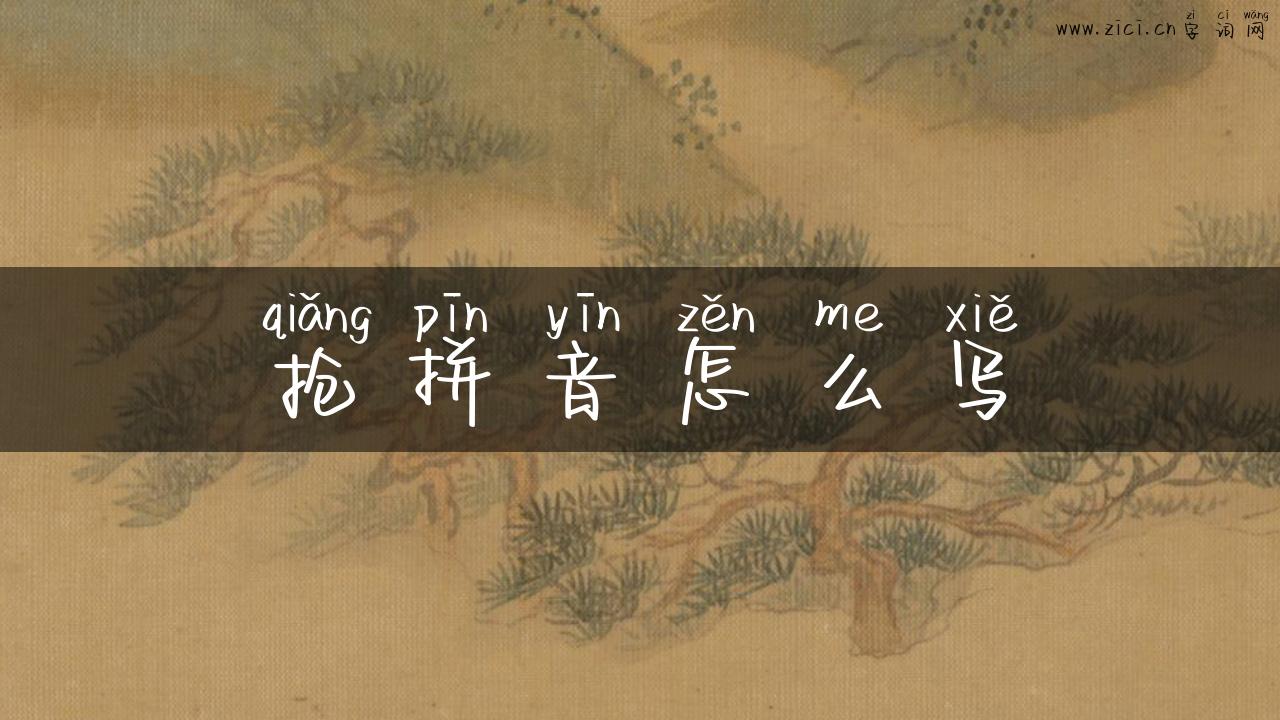 zì cí wǎng
www.zici.cn 字词网
qiǎng pīn yīn zěn me xiě
抢拼音怎么写